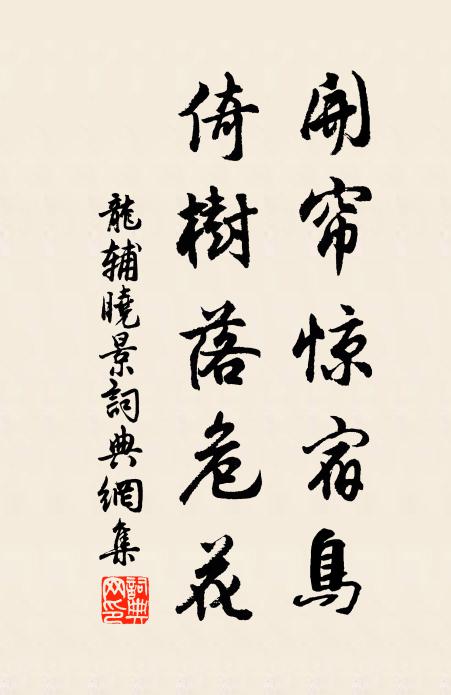 開帘惊宿鳥
倚樹落危花
龍辅曉景詞典網集
詞典网印